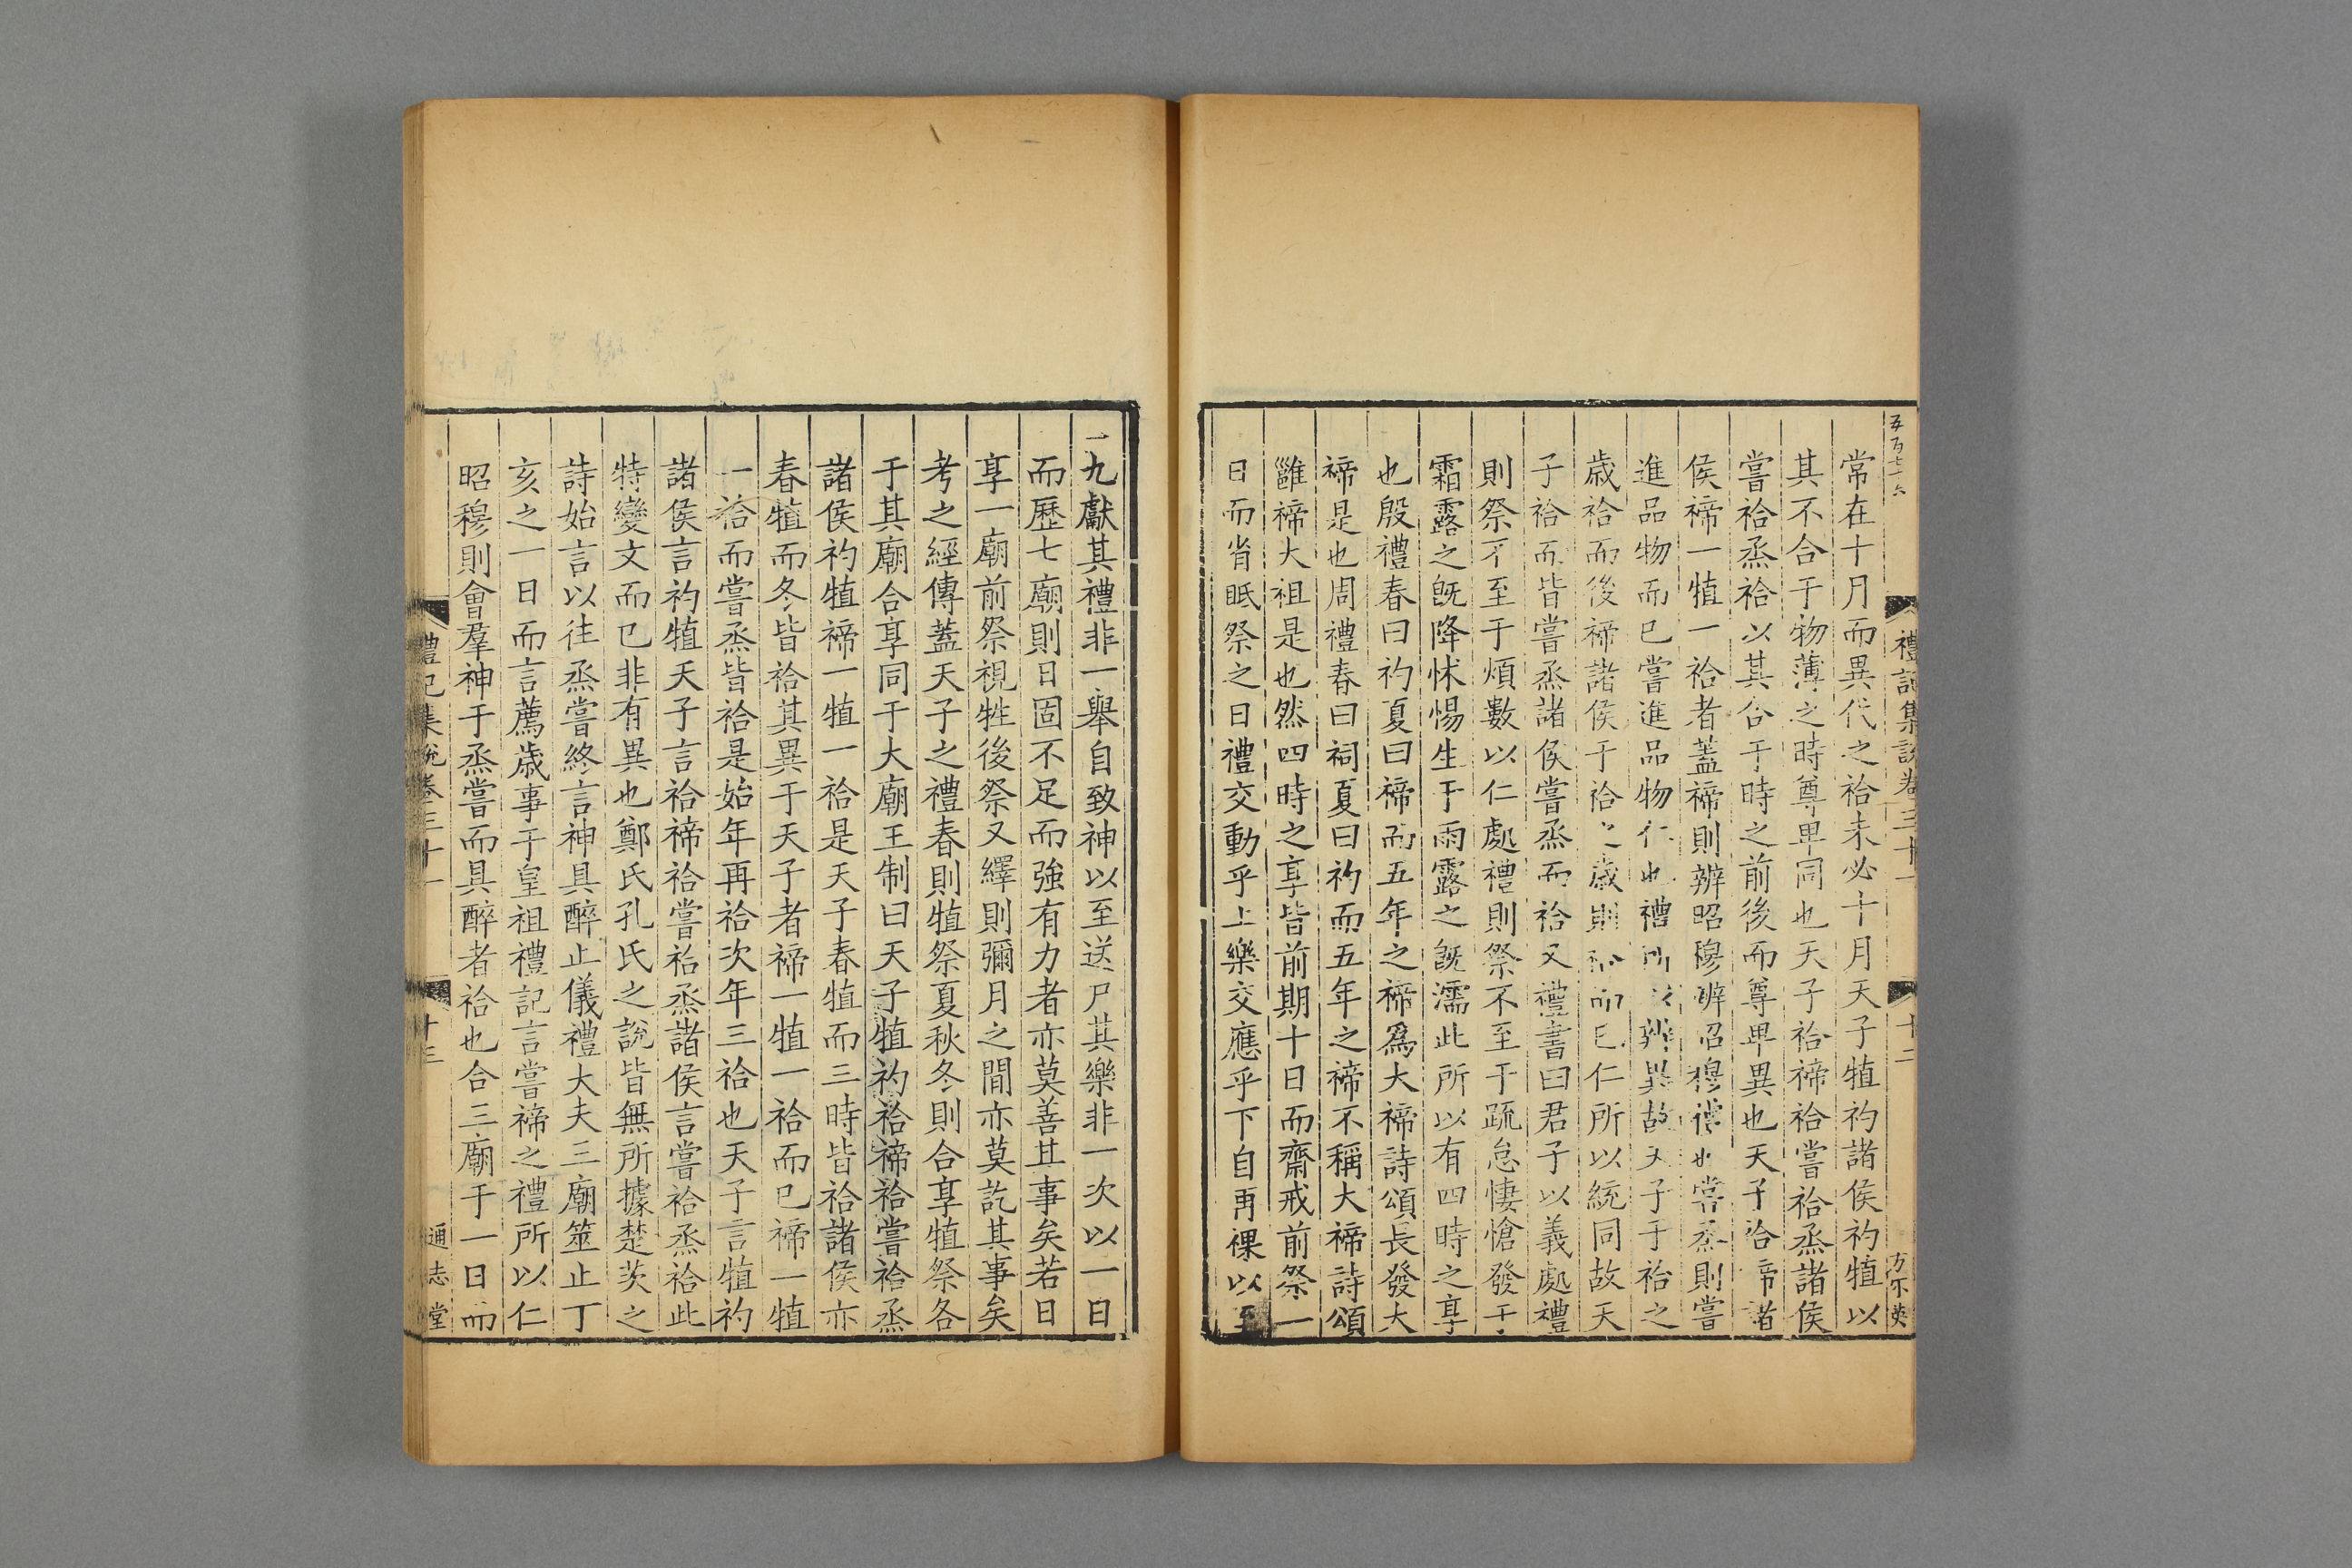 五百七十六
禮記集說卷三十一
十二
方不英
常在十月而異代之祫未必十月天子犆礿諸侯礿犆以
其不合于物薄之時尊卑同也天子祫禘祫嘗祫烝諸侯
嘗祫烝祫以其合于時之前後而尊卑異也天子祫禘諸
侯禘一犆一祫者蓋禘則辨昭穆辨昭穆禮也嘗烝則嘗
進品物而已嘗進品物仁也禮所以辨異故天子于祫之
歲祫而後禘諸侯于祫之歲則祫而已仁所以統同故天
子祫而皆嘗烝諸侯嘗烝而祫又禮書曰君子以義處禮
則祭不至于煩數以仁處禮則祭不至于疏怠悽愴發于
霜露之旣降怵惕生于雨露之旣濡此所以有四時之享
也殷禮春曰礿夏曰禘而五年之禘爲大禘詩頌長發大
禘是也周禮春曰祠夏曰礿而五年之禘不稱大禘詩頌
雝禘大祖是也然四時之享皆前期十日而齋戒前祭一
日而省眡祭之日禮交動乎上樂交應乎下自再祼以至
一九獻其禮非一舉自致神以至送尸其樂非一次以一日
而歷七廟則日固不足而強有力者亦莫善其事矣若日
享一廟前祭視牲後祭又繹則彌月之間亦莫訖其事矣
考之經傳蓋天子之禮春則犆祭夏秋冬則合享犆祭各
于其廟合享同于大廟王制曰天子犆礿祫禘祫嘗祫烝
諸侯礿犆禘一犆一祫是天子春犆而三時皆祫諸侯亦
春犆而冬皆祫其異于天子者禘一犆一祫而已禘一犆
一祫而嘗烝皆祫是始年再祫次年三祫也天子言犆礿
諸侯言礿犆天子言祫禘祫嘗祫烝諸侯言嘗祫烝祫此
特變文而已非有異也鄭氏孔氏之說皆無所據楚茨之
詩始言以往烝嘗終言神具醉止儀禮大夫三廟筮止丁
亥之一日而言薦歲事于皇祖禮記言嘗禘之禮所以仁
昭穆則會羣神于烝嘗而具醉者祫也合三廟于一日而
禮記集說卷三十一
十三
通志堂